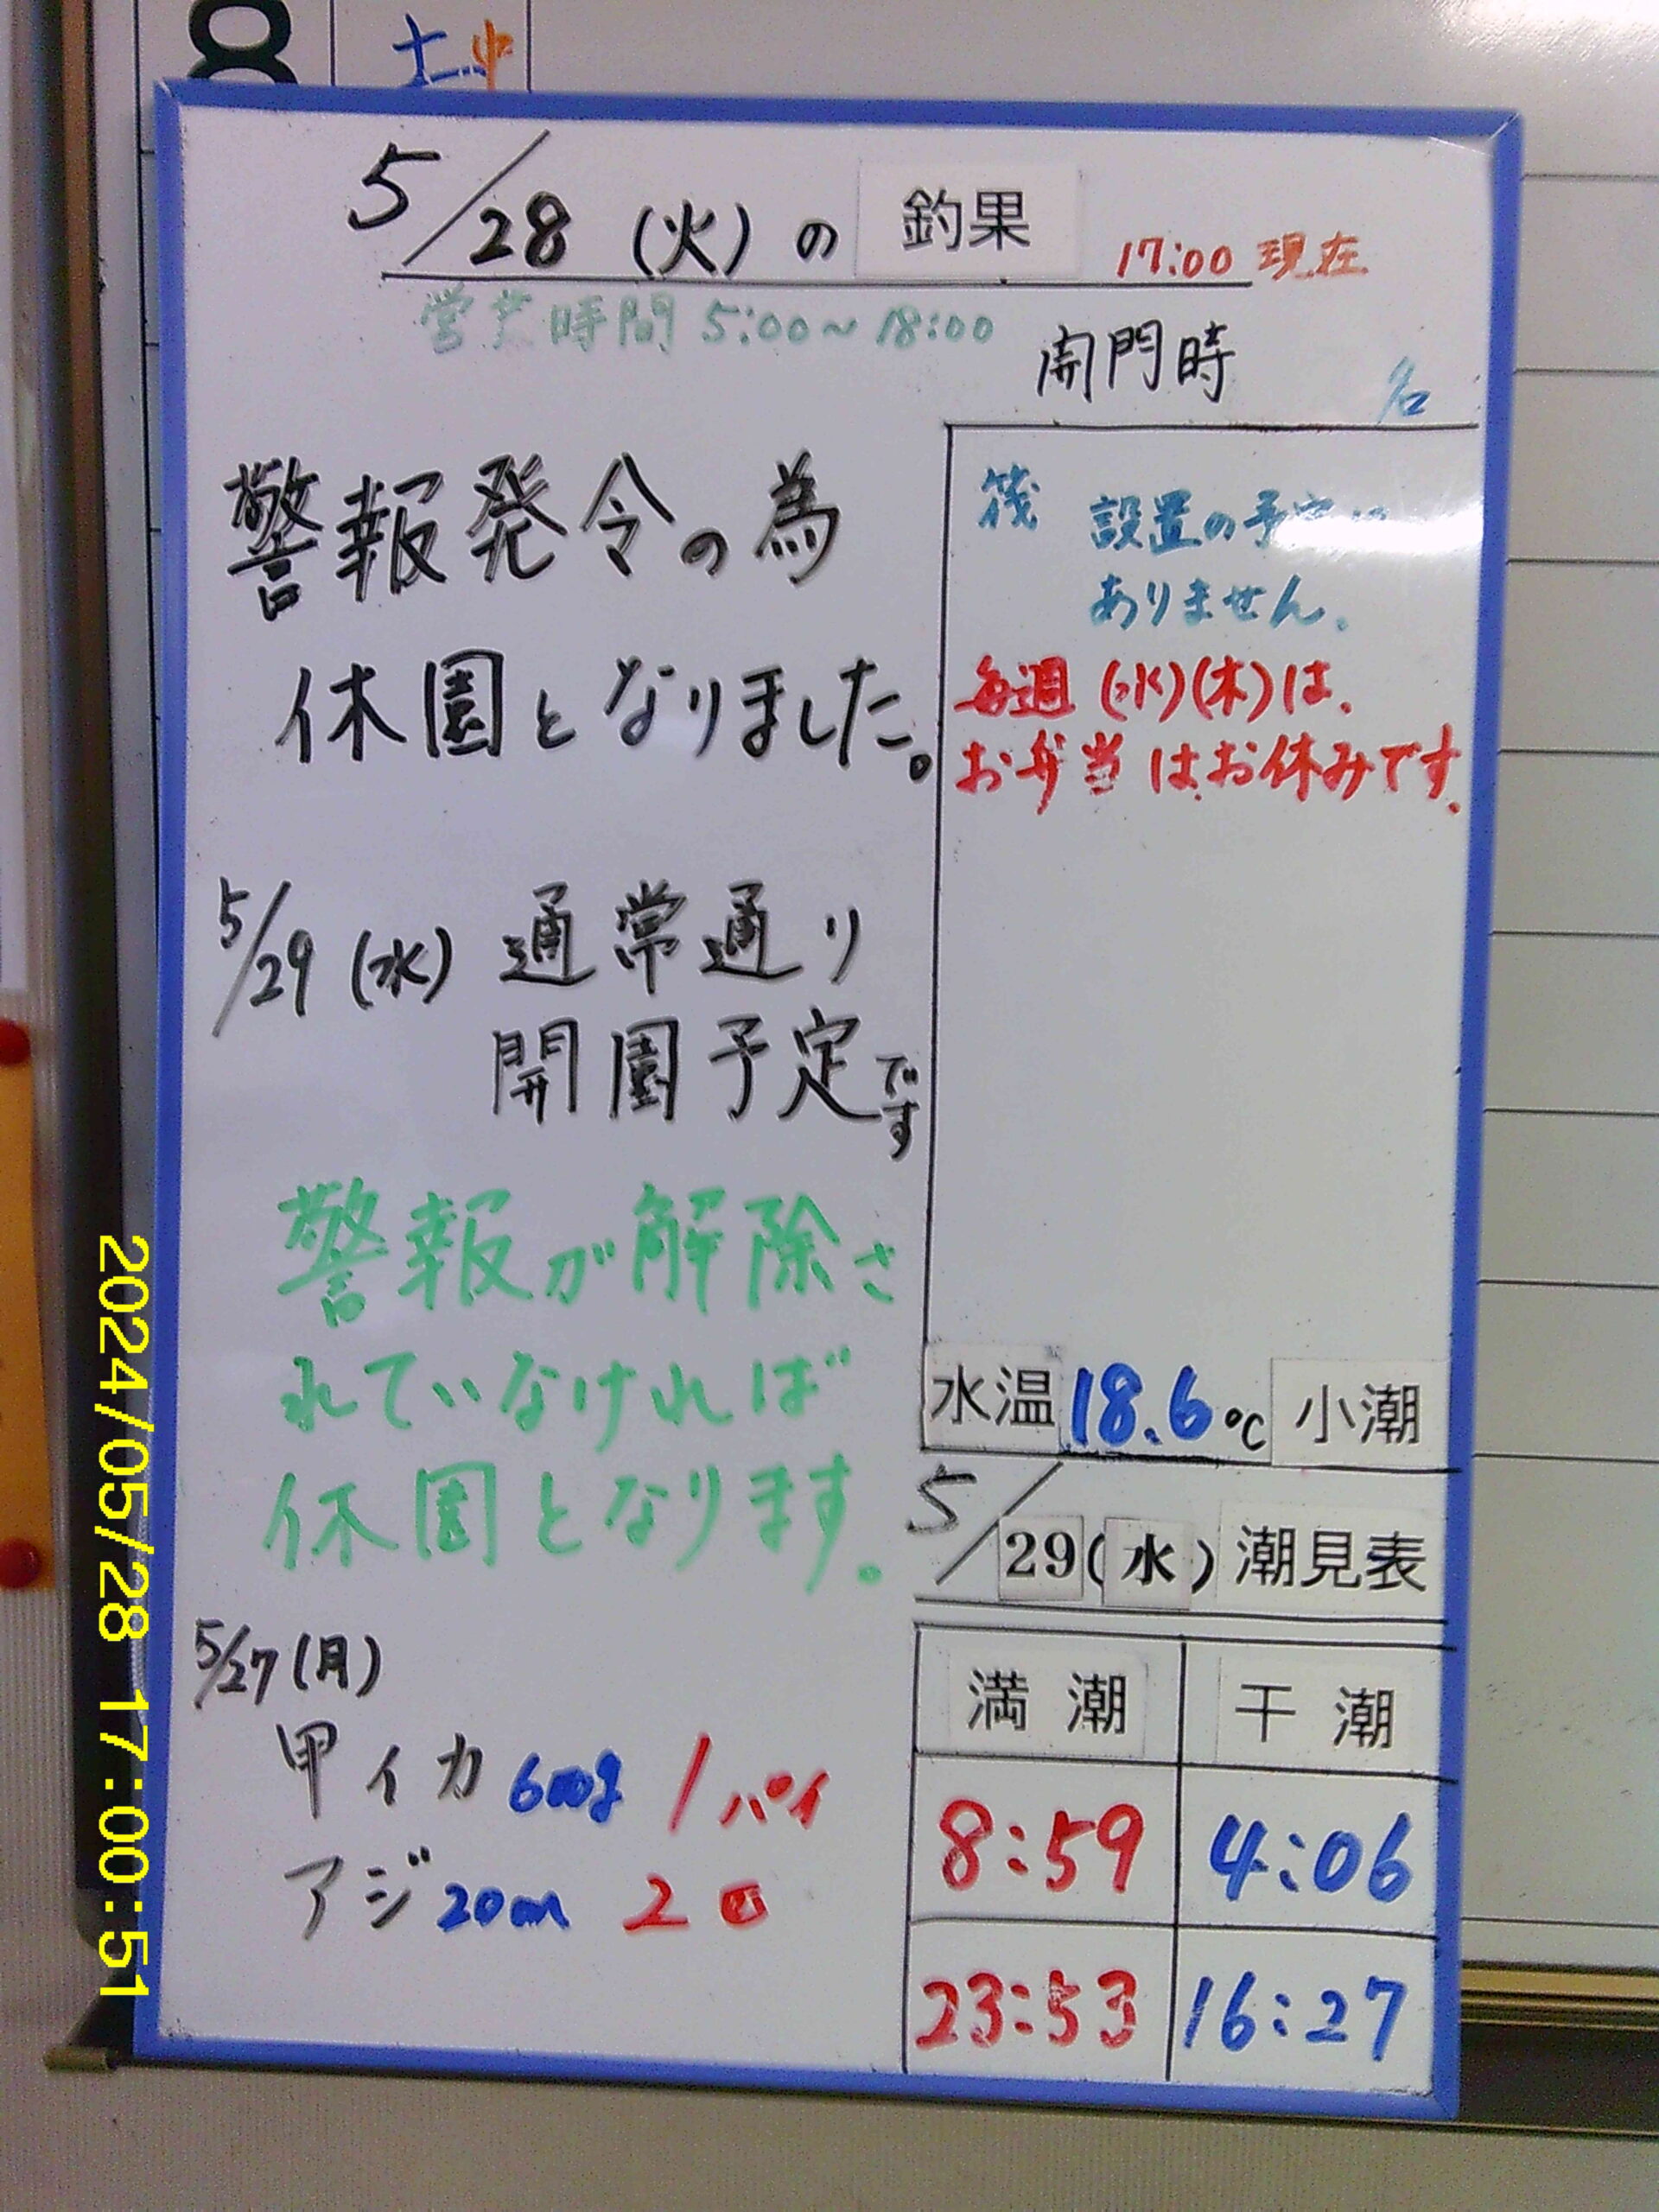 8
土
中
5/28 (火) の 釣果 17:00 現在
営業時間 5:00～18:00
開門時 名
警報発令の為
休園となりました。
5/29 (水) 通常通り
開園予定です
警報が解除さ
れていなければ
休園となります。
5/27 (月)
甲イカ 600g 1パイ
アジ 20cm 2匹
筏 設置の予定は
ありません。
毎週 (水)(木)は、
お弁当はお休みです。
水温 18.6℃ 小潮
5/29 (水) 潮見表
満潮 干潮
8:59 4:06
23:53 16:27
2024/05/28 17:00:51